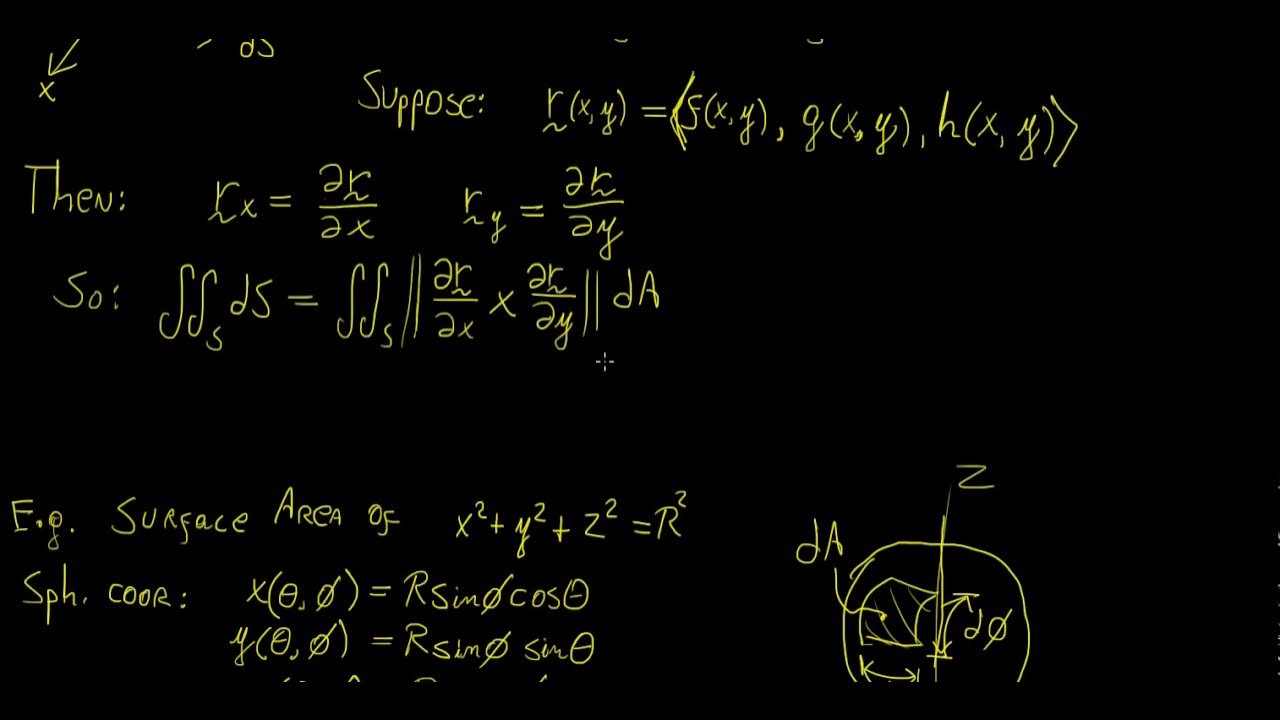 x dS
Suppose: r(x,y) = ⟨f(x,y), g(x,y), h(x,y)⟩
Then: rₓ = ∂r/∂x r_y = ∂r/∂y
So: ∬_S dS = ∬_S ‖∂r/∂x × ∂r/∂y‖ dA
z
E.g. Surface Area of x² + y² + z² = R²
dA
Sph. coor: x(θ, ϕ) = R sinϕ cosθ
dϕ
y(θ, ϕ) = R sinϕ sinθ